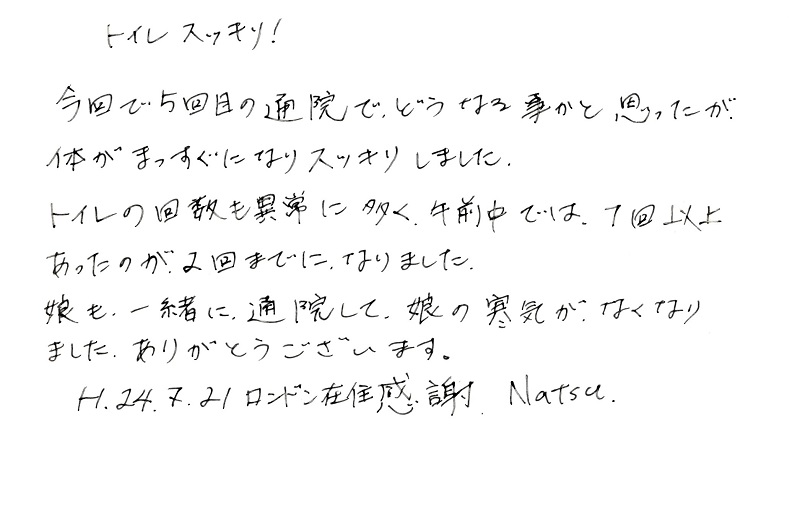 トイレスッキリ!
今回で5回目の通院で、どうなる事かと思ったが、
体がまっすぐになりスッキリしました。
トイレの回数も異常に多く、午前中では、7回以上
あったのが、2回までに、なりました。
娘も、一緒に、通院して、娘の寒気が、なくなり
ました。ありがとうございます。
H.24.7.21 ロンドン在住感謝 Natsu.